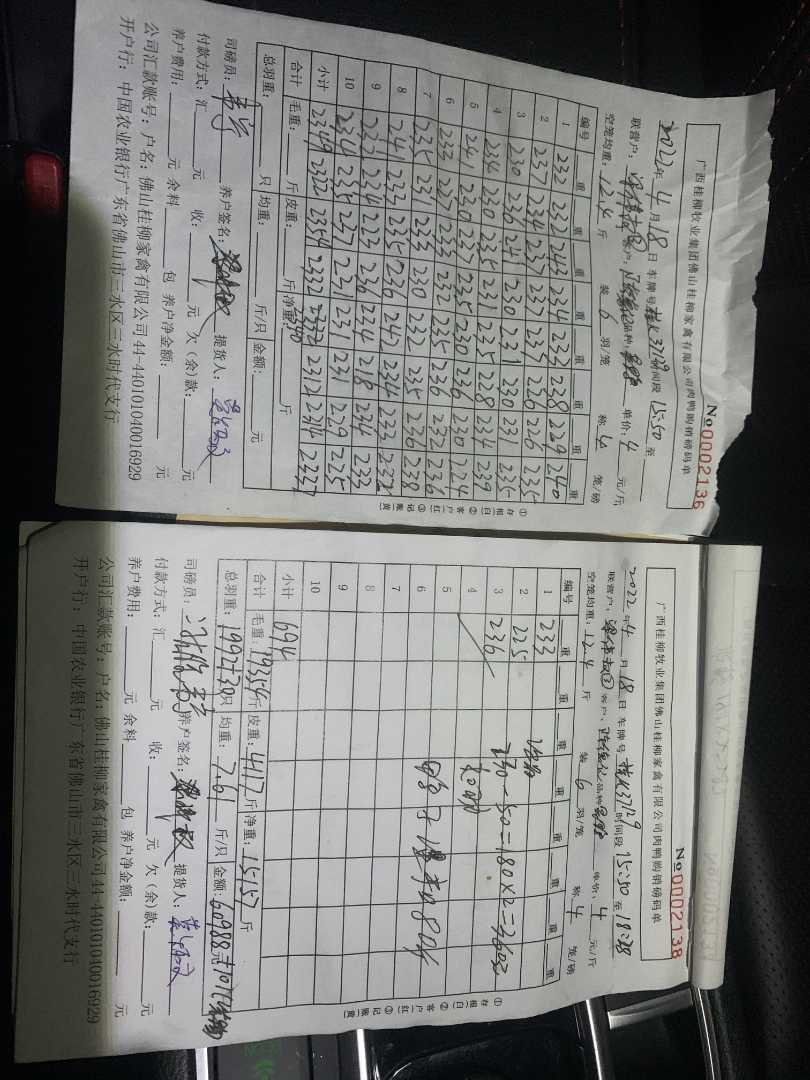 广西桂柳牧业集团佛山桂柳家禽有限公司肉鸭购销磅码单
№0002136
2022年4月18日 车牌号 桂K37129 时间段 15:50 至
联营户： 客户： 品种： 单价：4 元/斤
空笼均重：12.4 斤 装 6 羽/笼 称 4 笼/磅
编号 重 重 重 重 重 重 重 重
1 232 232 243 234 233 228 229 240
2 237 234 237 237 235 226 226 235
3 230 226 241 230 231 230 231 235
4 234 230 235 231 235 228 234 239
5 241 230 237 235 230 236 230 224
6 233 227 233 232 235 236 222 236
7 235 231 233 230 232 235 236 238
8 241 233 235 236 242 234 233 232
9 232 234 223 236 234 218 234 233
10 234 235 237 231 231 231 229 225
小计 2349 2322 2354 2332 2312 2314 2337
合计 毛重： 斤 皮重： 斤 净重： 斤
总羽重： 只 均重： 斤/只 金额： 元
司磅员： 养户签名： 提货人：
付款方式：汇 元 收： 元 欠（余）款： 元
养户费用： 元 余料 包 养户净金额： 元
公司汇款账号：户名：佛山桂柳家禽有限公司44-440101040016929
开户行：中国农业银行广东省佛山市三水区三水时代支行
①存根（白） ②客户（红） ③记账（黄）
广西桂柳牧业集团佛山桂柳家禽有限公司肉鸭购销磅码单
№0002138
2022年4月18日 车牌号 桂K37129 时间段 15:50 至 18:28
联营户： 客户： 品种 单价：4 元/斤
空笼均重：12.4 斤 装 6 羽/笼 称 4 笼/磅
编号 重 重 重 重 重 重 重 重
1 233
2 225
3 236 230-50=180×2=360元
4
5
6
7
8
9
10
小计 694
合计 毛重：19354斤 皮重：4117斤 净重：15157斤
总羽重：1992 只 均重：7.61 斤/只 金额：60988元
司磅员： 养户签名： 提货人：
付款方式：汇 元 收： 元 欠（余）款： 元
养户费用： 元 余料 包 养户净金额： 元
公司汇款账号：户名：佛山桂柳家禽有限公司44-440101040016929
开户行：中国农业银行广东省佛山市三水区三水时代支行
①存根（白） ②客户（红） ③记账（黄）